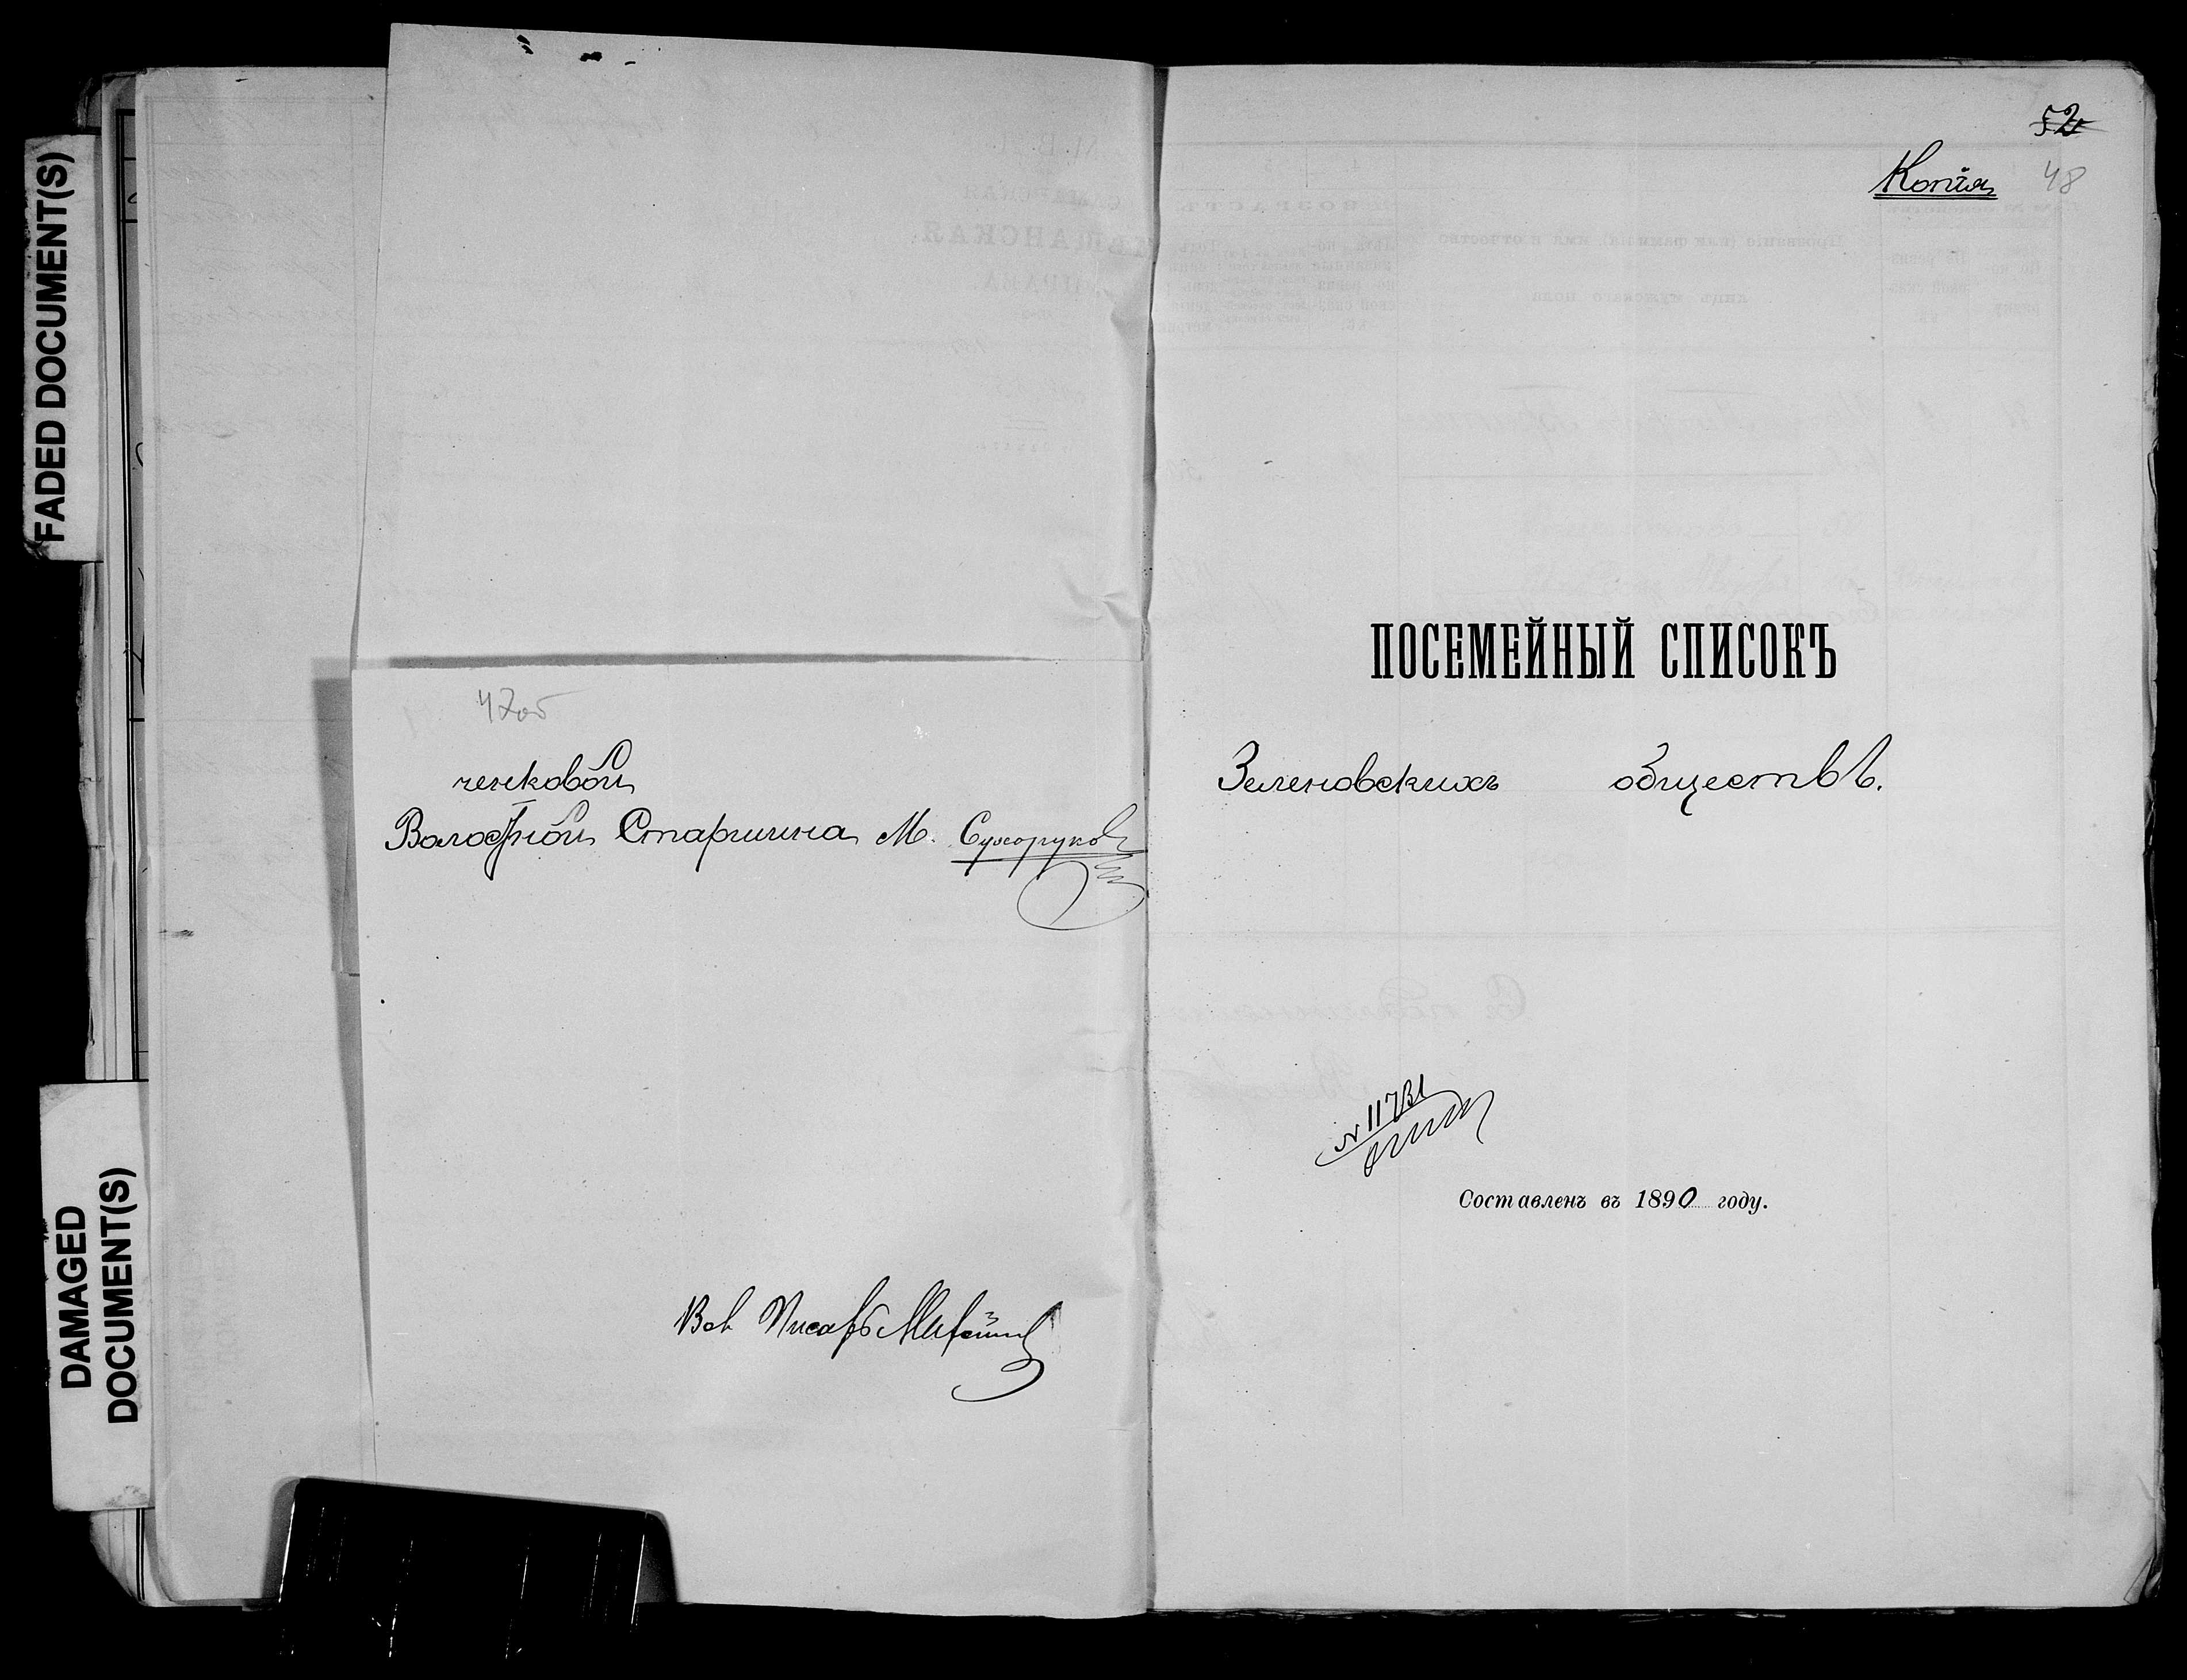 FADED DOCUMENT(S)
DAMAGED
DOCUMENT(S)
47об
ченковой
Волостной Старшина М. Сухоруков
Писарь
52
Копія 48
ПОСЕМЕЙНЫЙ СПИСОКЪ
Зеленовскихъ обществъ.
№ 11731
Составленъ въ 1890 году.